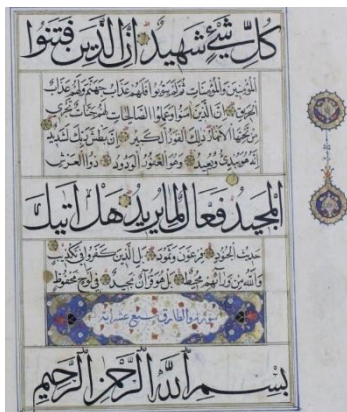 كل شيء شهيد ان الذين فتنوا
المؤمنين والمؤمنات ثم لم يتوبوا فلهم عذاب جهنم ولهم عذاب
الحريق ان الذين آمنوا وعملوا الصالحات لهم جنات تجري
من تحتها الانهار ذلك الفوز الكبير ان بطش ربك لشديد
انه هو يبدئ ويعيد وهو الغفور الودود ذو العرش
المجيد فعال لما يريد هل اتيك
حديث الجنود فرعون وثمود بل الذين كفروا في تكذيب
والله من ورائهم محيط بل هو قرآن مجيد في لوح محفوظ
سورة والطارق سبع عشر آية
بسم الله الرحمن الرحيم